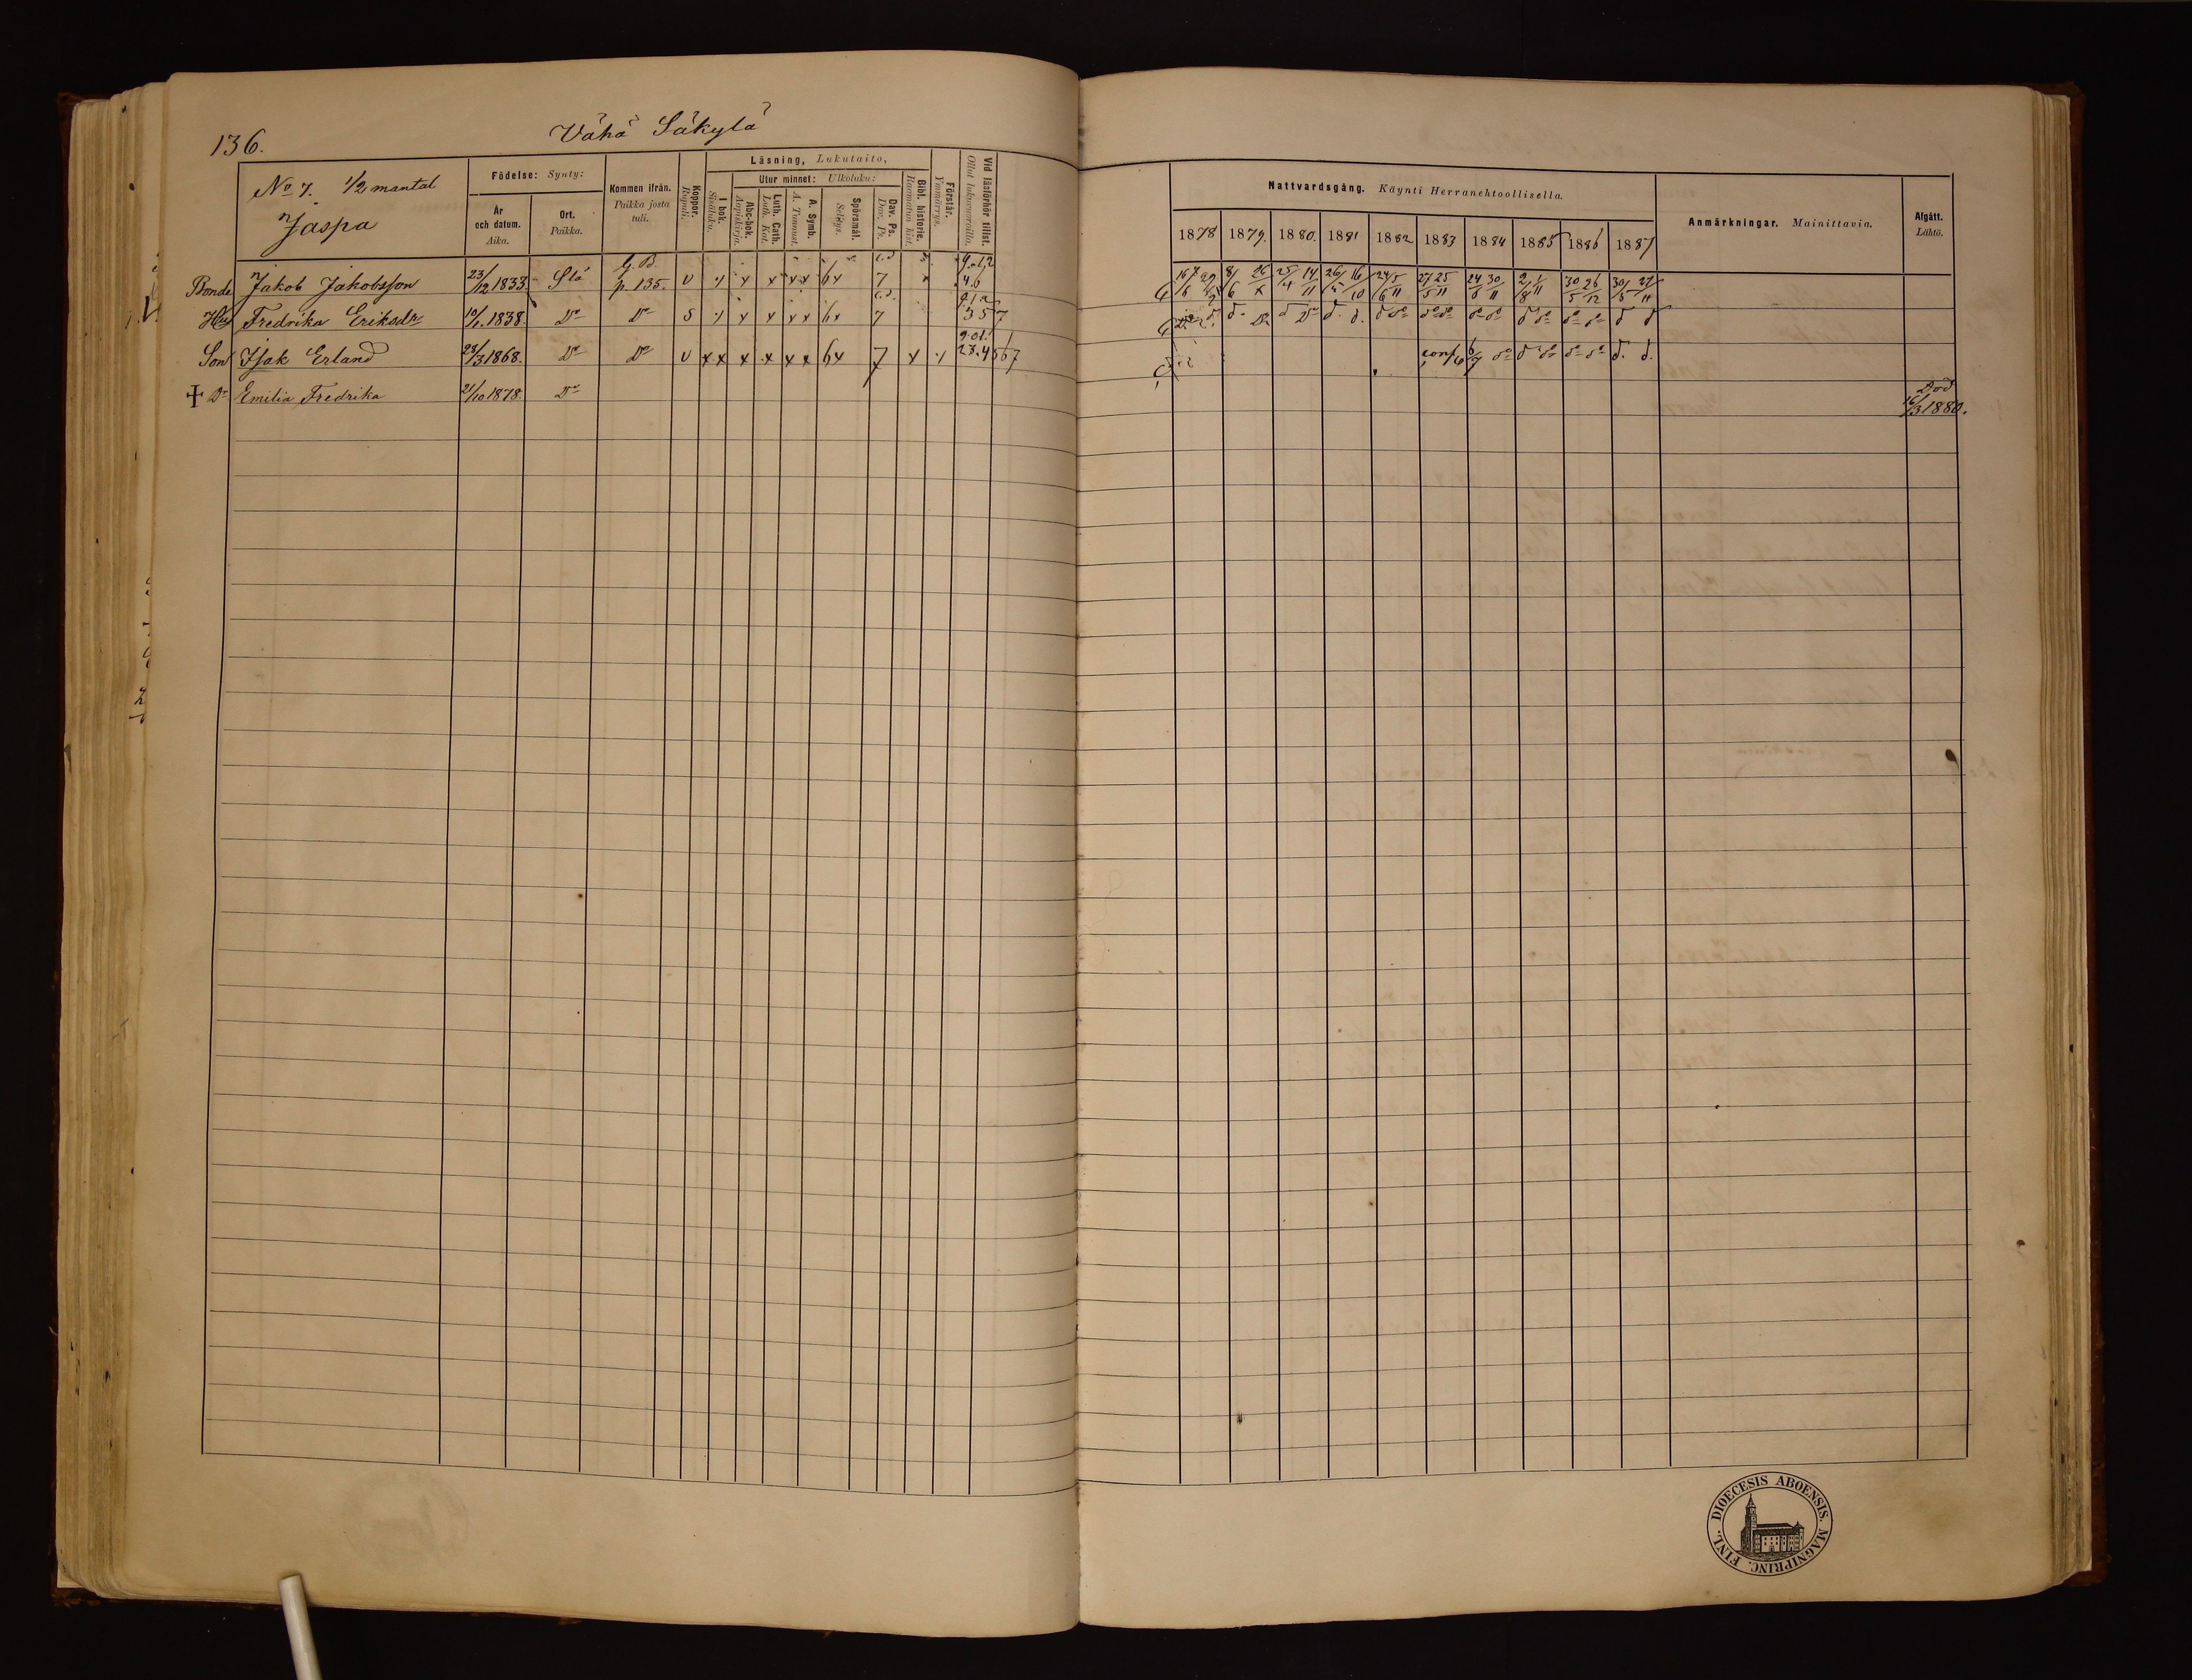 136.
Vähä Säkylä
No 7. 1/2 mantal
Jaspa
Födelse: Synty:
År och datum. Aika.
Ort. Paikka.
Kommen ifrån. Paikka josta tuli.
Koppor. Rupuli.
Läsning, Lukutaito,
I bok. Sisäluku.
Utur minnet: Ulkoluku:
Abc-bok. Aapiskirja.
Luth. Cath. Luth. Kat.
A. Symb. A. Tunnust.
Spörsmål. Selitys.
Dav. Ps. Dav. Ps.
Bibl. historie. Raamatun hist.
Förstår. Ymmärrys.
Vid läsförhör tillst. Ollut lukuvuoroilla.
Nattvardsgång. Käynti Herranehtoollisella.
1878 1879. 1880. 1881 1882 1883 1884 1885 1886 1887
Anmärkningar. Mainittavia.
Afgått. Lähtö.
Bonde Jakob Jakobsson 23/12 1833 Slä G. B. p. 135. v 7 46
8/6 25/4 14/11 26/5 16/10 24/6 5/11 27/5 25/11 24/6 30/11 2/8 1/11 30/5 26/12 30/5 27/11
Hu Fredrika Eriksdr 10/1. 1838. Do Do s 7 357
Son Isak Erland 28/3 1868. Do Do v x x x x x x 6x 7 x 23.4567
conf 6/7
+ Dr Emilia Fredrika 21/10 1878. Do
Död
16/3 1880.
FINL. DIOECESIS ABOENSIS. MAGNIPRINC.